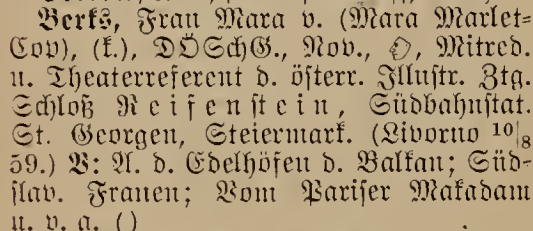 Berks, Frau Mara v. (Mara Marlet=
Cop), (k.), DÖSchG., Nov., Mitred.
u. Theaterreferent d. österr. Illustr. Ztg.
Schloß Reifenstein, Südbahnstat.
St. Georgen, Steiermark. (Livorno 10/8
59.) V: A. d. Edelhöfen d. Balkan; Süd=
slav. Frauen; Vom Pariser Makadam
u. v. a. ()